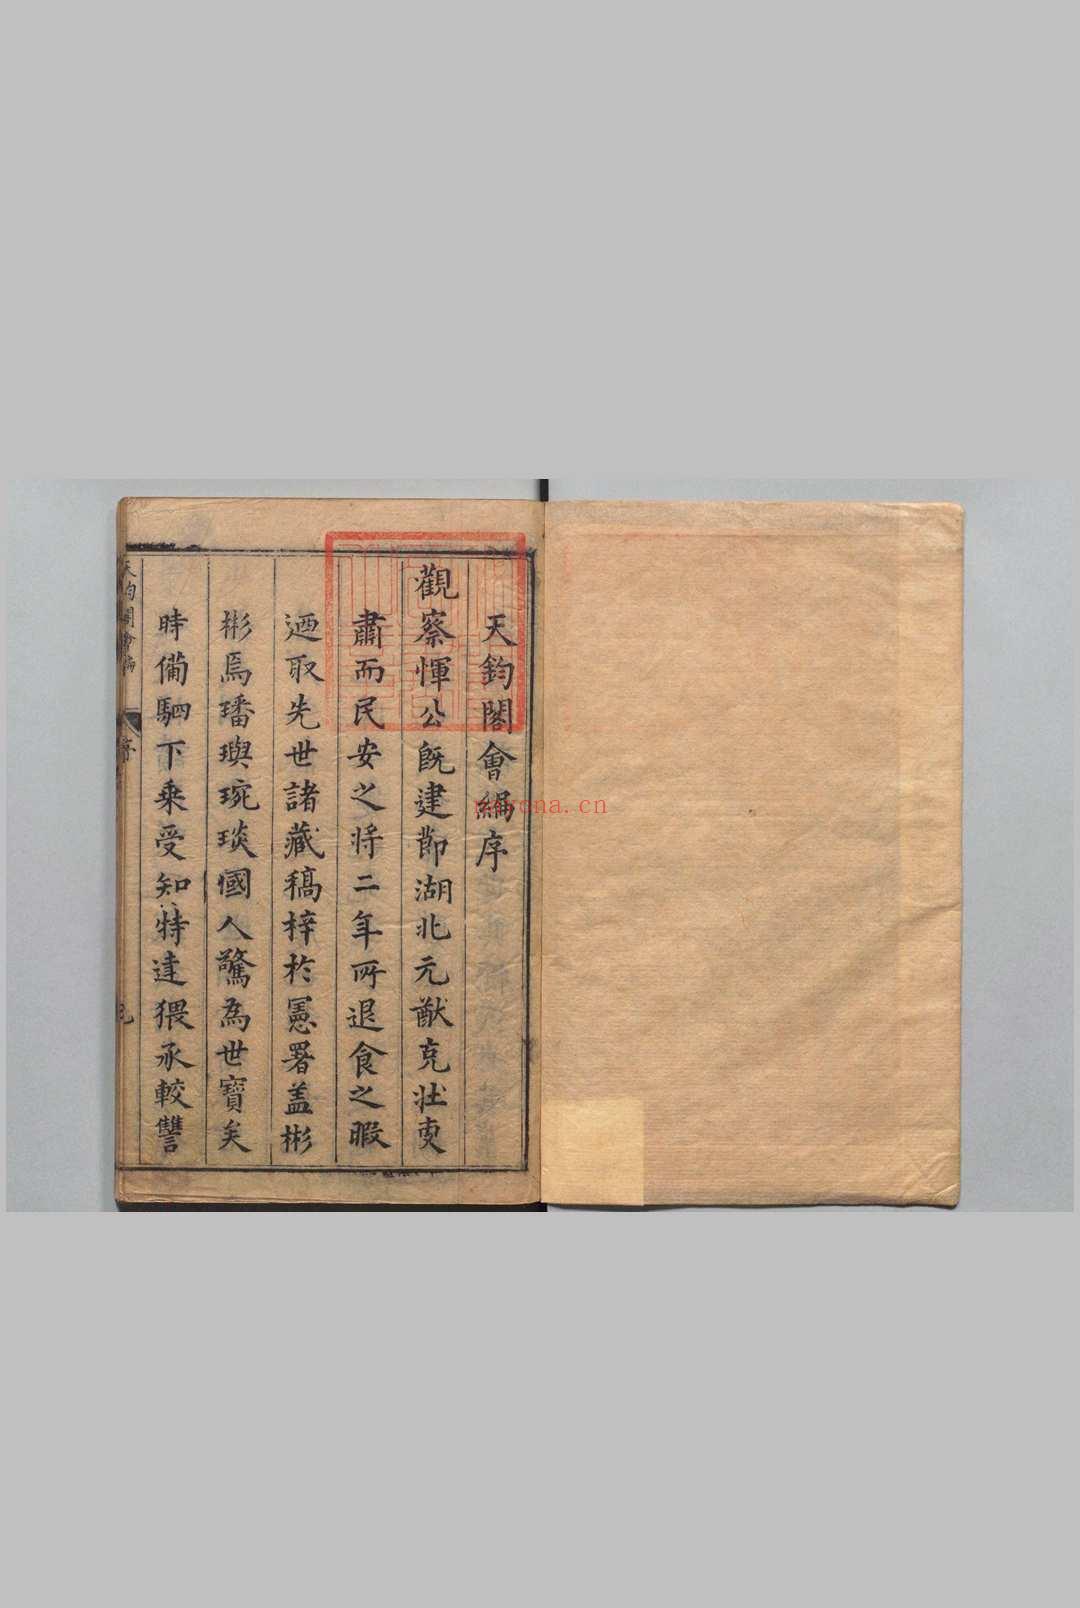 天鈞閣會編序
觀察惲公旣建節湖北元猷克壯吏
肅而民安之將二年所退食之暇
迺取先世諸藏稿梓於憲署盖彬
彬焉璠璵琬琰國人驚為世寶矣
時備駟下乗受知特達猥承較讐
天鈞閣會編
序